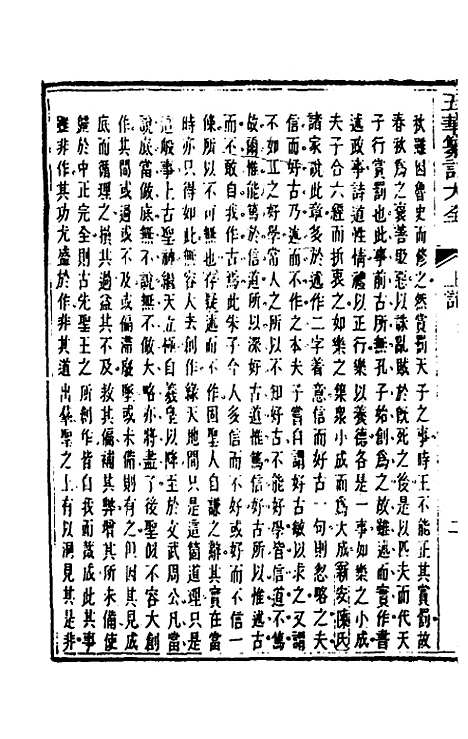 五華纂訂大全 上論 二
秋雖因魯史而修之然賞罰天子之事時王不能正其賞罰故
春秋爲之褒善貶惡以誅亂賊於既死之後是以匹夫而代天
子行賞罰也此事前古所無孔子始創爲之故雖述而實作書
政事詩道性情禮以正行樂以養德各是一事如樂之小成
夫子合六經而折衷之如樂之集衆小成而爲大成新安陳氏
諸家說此章多於述作二字着意信而好古一句則忽略之夫
信而好古乃述而不作之本夫子嘗自謂好古敏以求之又謂
不如丘之好學常人之所以不知好古不能好學皆信道不篤
故爾惟能篤於信道所以深好古道惟篤信好古所以惟述古
而不敢自我作古焉此朱子今人多信而不好或好而不信一
條所以不可不也存疑述而不作固聖人自謙之辭其實在當
時亦只得如此已無可容大去創作緣天地間只是這箇道理只是
這般事上古聖神繼天立極自羲皇以降至於文武周公凡當
說底當做底無不說無不做大略亦將盡了後聖似不容大創
作其間或有過或有偏滯廢墜或未備則有之但因其見成
底而循理之損其過益其不及救其偏補其弊增其所未備使
歸於中正完全則古先聖王之所創作皆自我而成此其事
雖非作其功尤盛於作非其道出羣聖之上有以洞見其是非